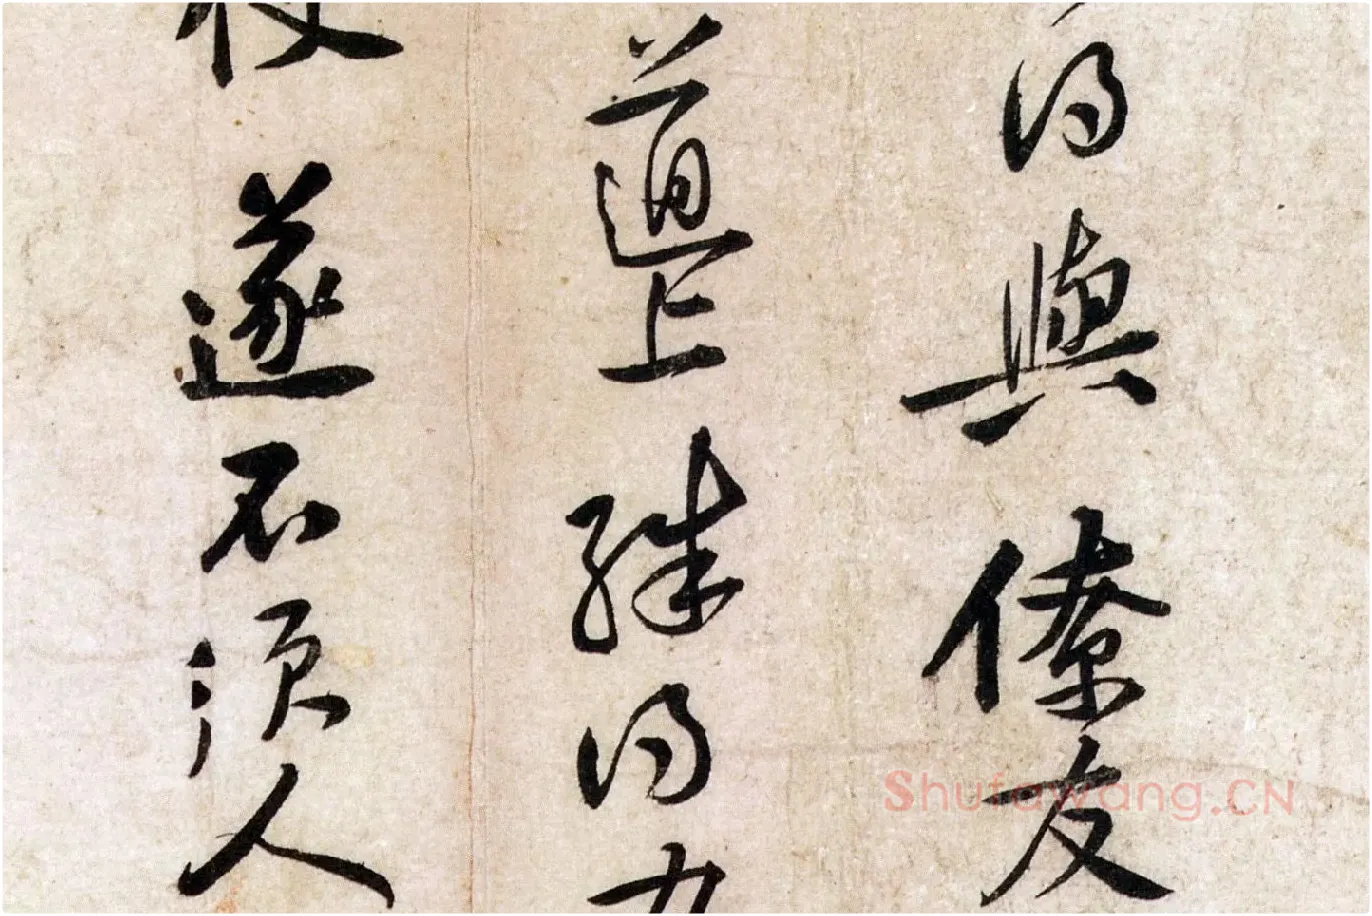 得與僚友
道上殊得
遂不須人
Shufawang.CN